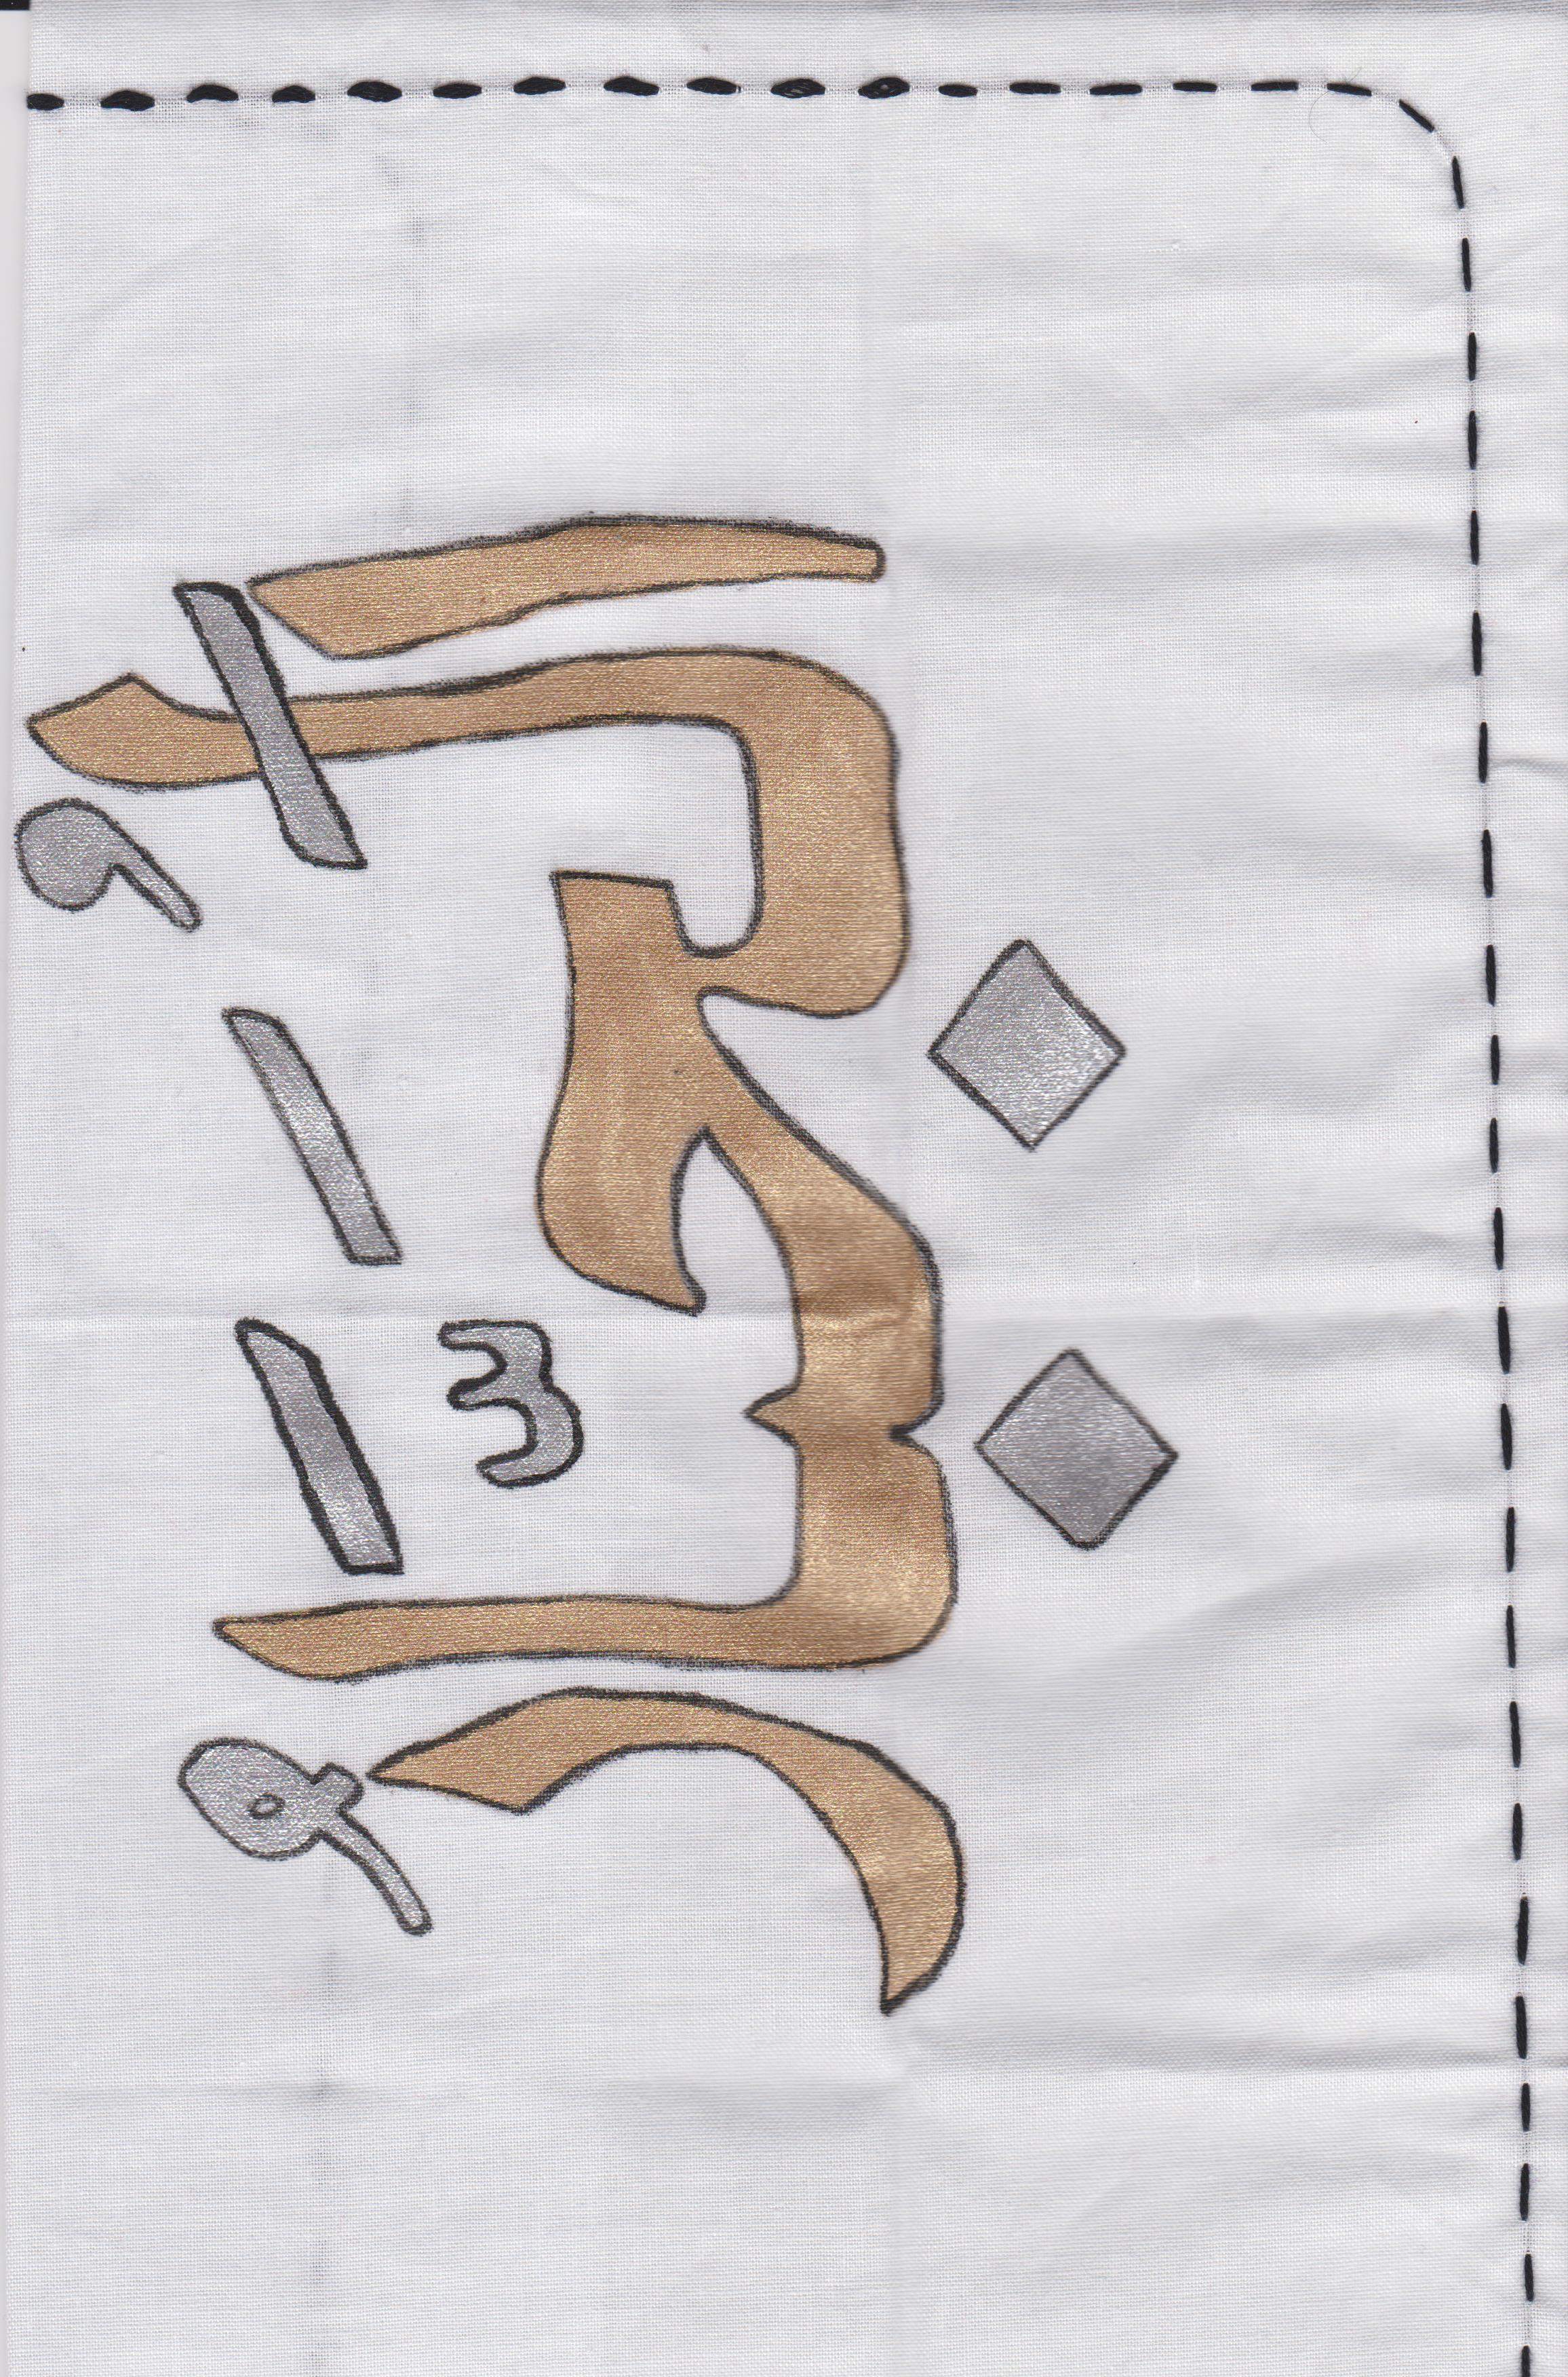 اَلْجَبَّارُ